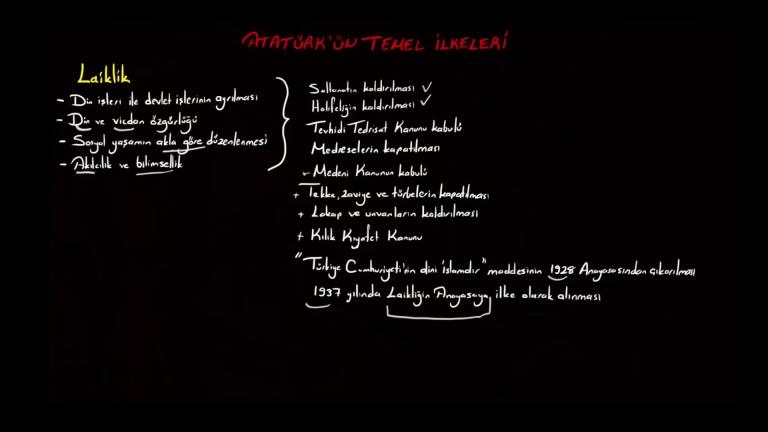 ATATÜRK'ÜN TEMEL İLKELERİ
Laiklik
- Din işleri ile devlet işlerinin ayrılması
- Din ve vicdan özgürlüğü
- Sosyal yaşamın akla göre düzenlenmesi
- Akılcılık ve bilimsellik
Saltanatın kaldırılması ✓
Halifeliğin kaldırılması ✓
Tevhidi Tedrisat Kanunu kabulü
Medreselerin kapatılması
+ Medeni Kanunun kabulü
+ Tekke, zaviye ve türbelerin kapatılması
+ Lakap ve unvanların kaldırılması
+ Kılık Kıyafet Kanunu
"Türkiye Cumhuriyeti'nin dini islamdır" maddesinin 1928 Anayasasından çıkarılması
1937 yılında Laikliğin Anayasaya ilke olarak alınması